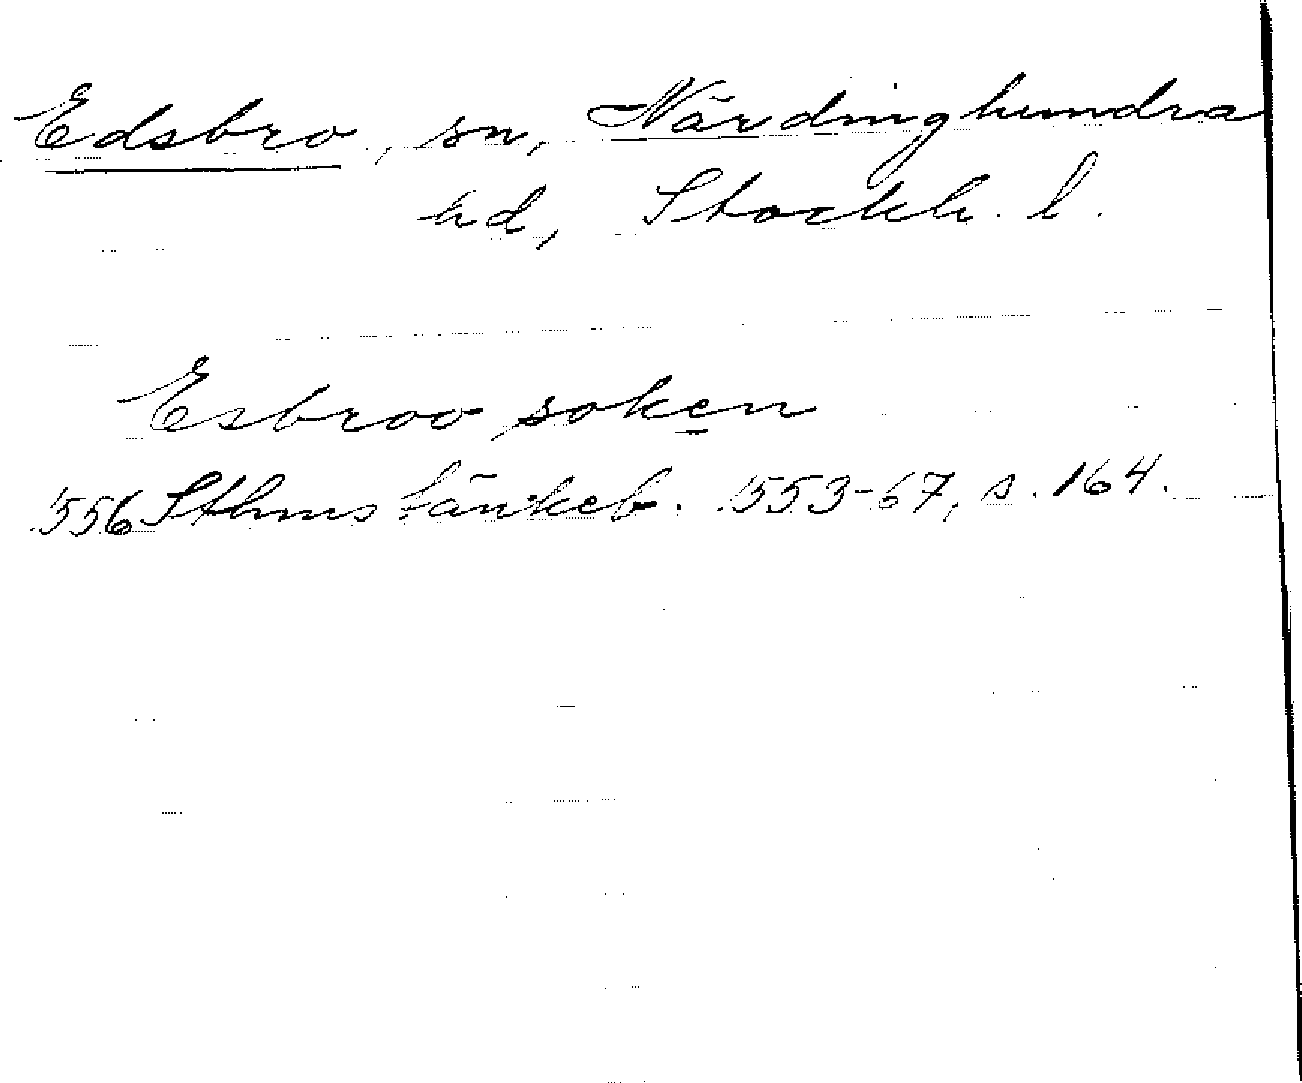 Edsbro, sn, Närdinghundra
hd, Stockh. l.
Esbroo soken
1556 Sthms tänkeb. 1553-67, s. 164.